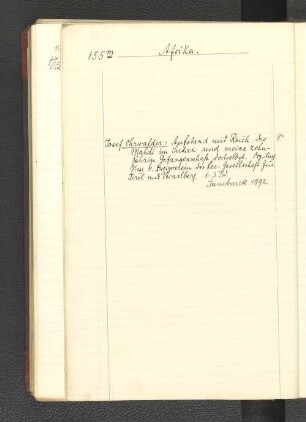 155 m
Afrika.
Josef Ohrwalder: Aufstand und Reich des 8°
Mahdi im Sudan und meine zehn-
jährige Gefangenschaft dortselbst.
b. Zweigverein der Leo-Gesellschaft für
Tirol und Vorarlberg. 1-3
Innsbruck 1892